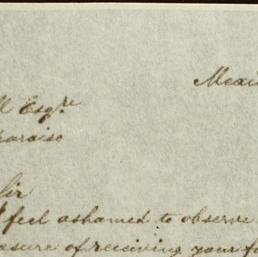 Mexi
Esqre
paraiso
Sir
I feel ashamed to observe
easure of receiving your fa